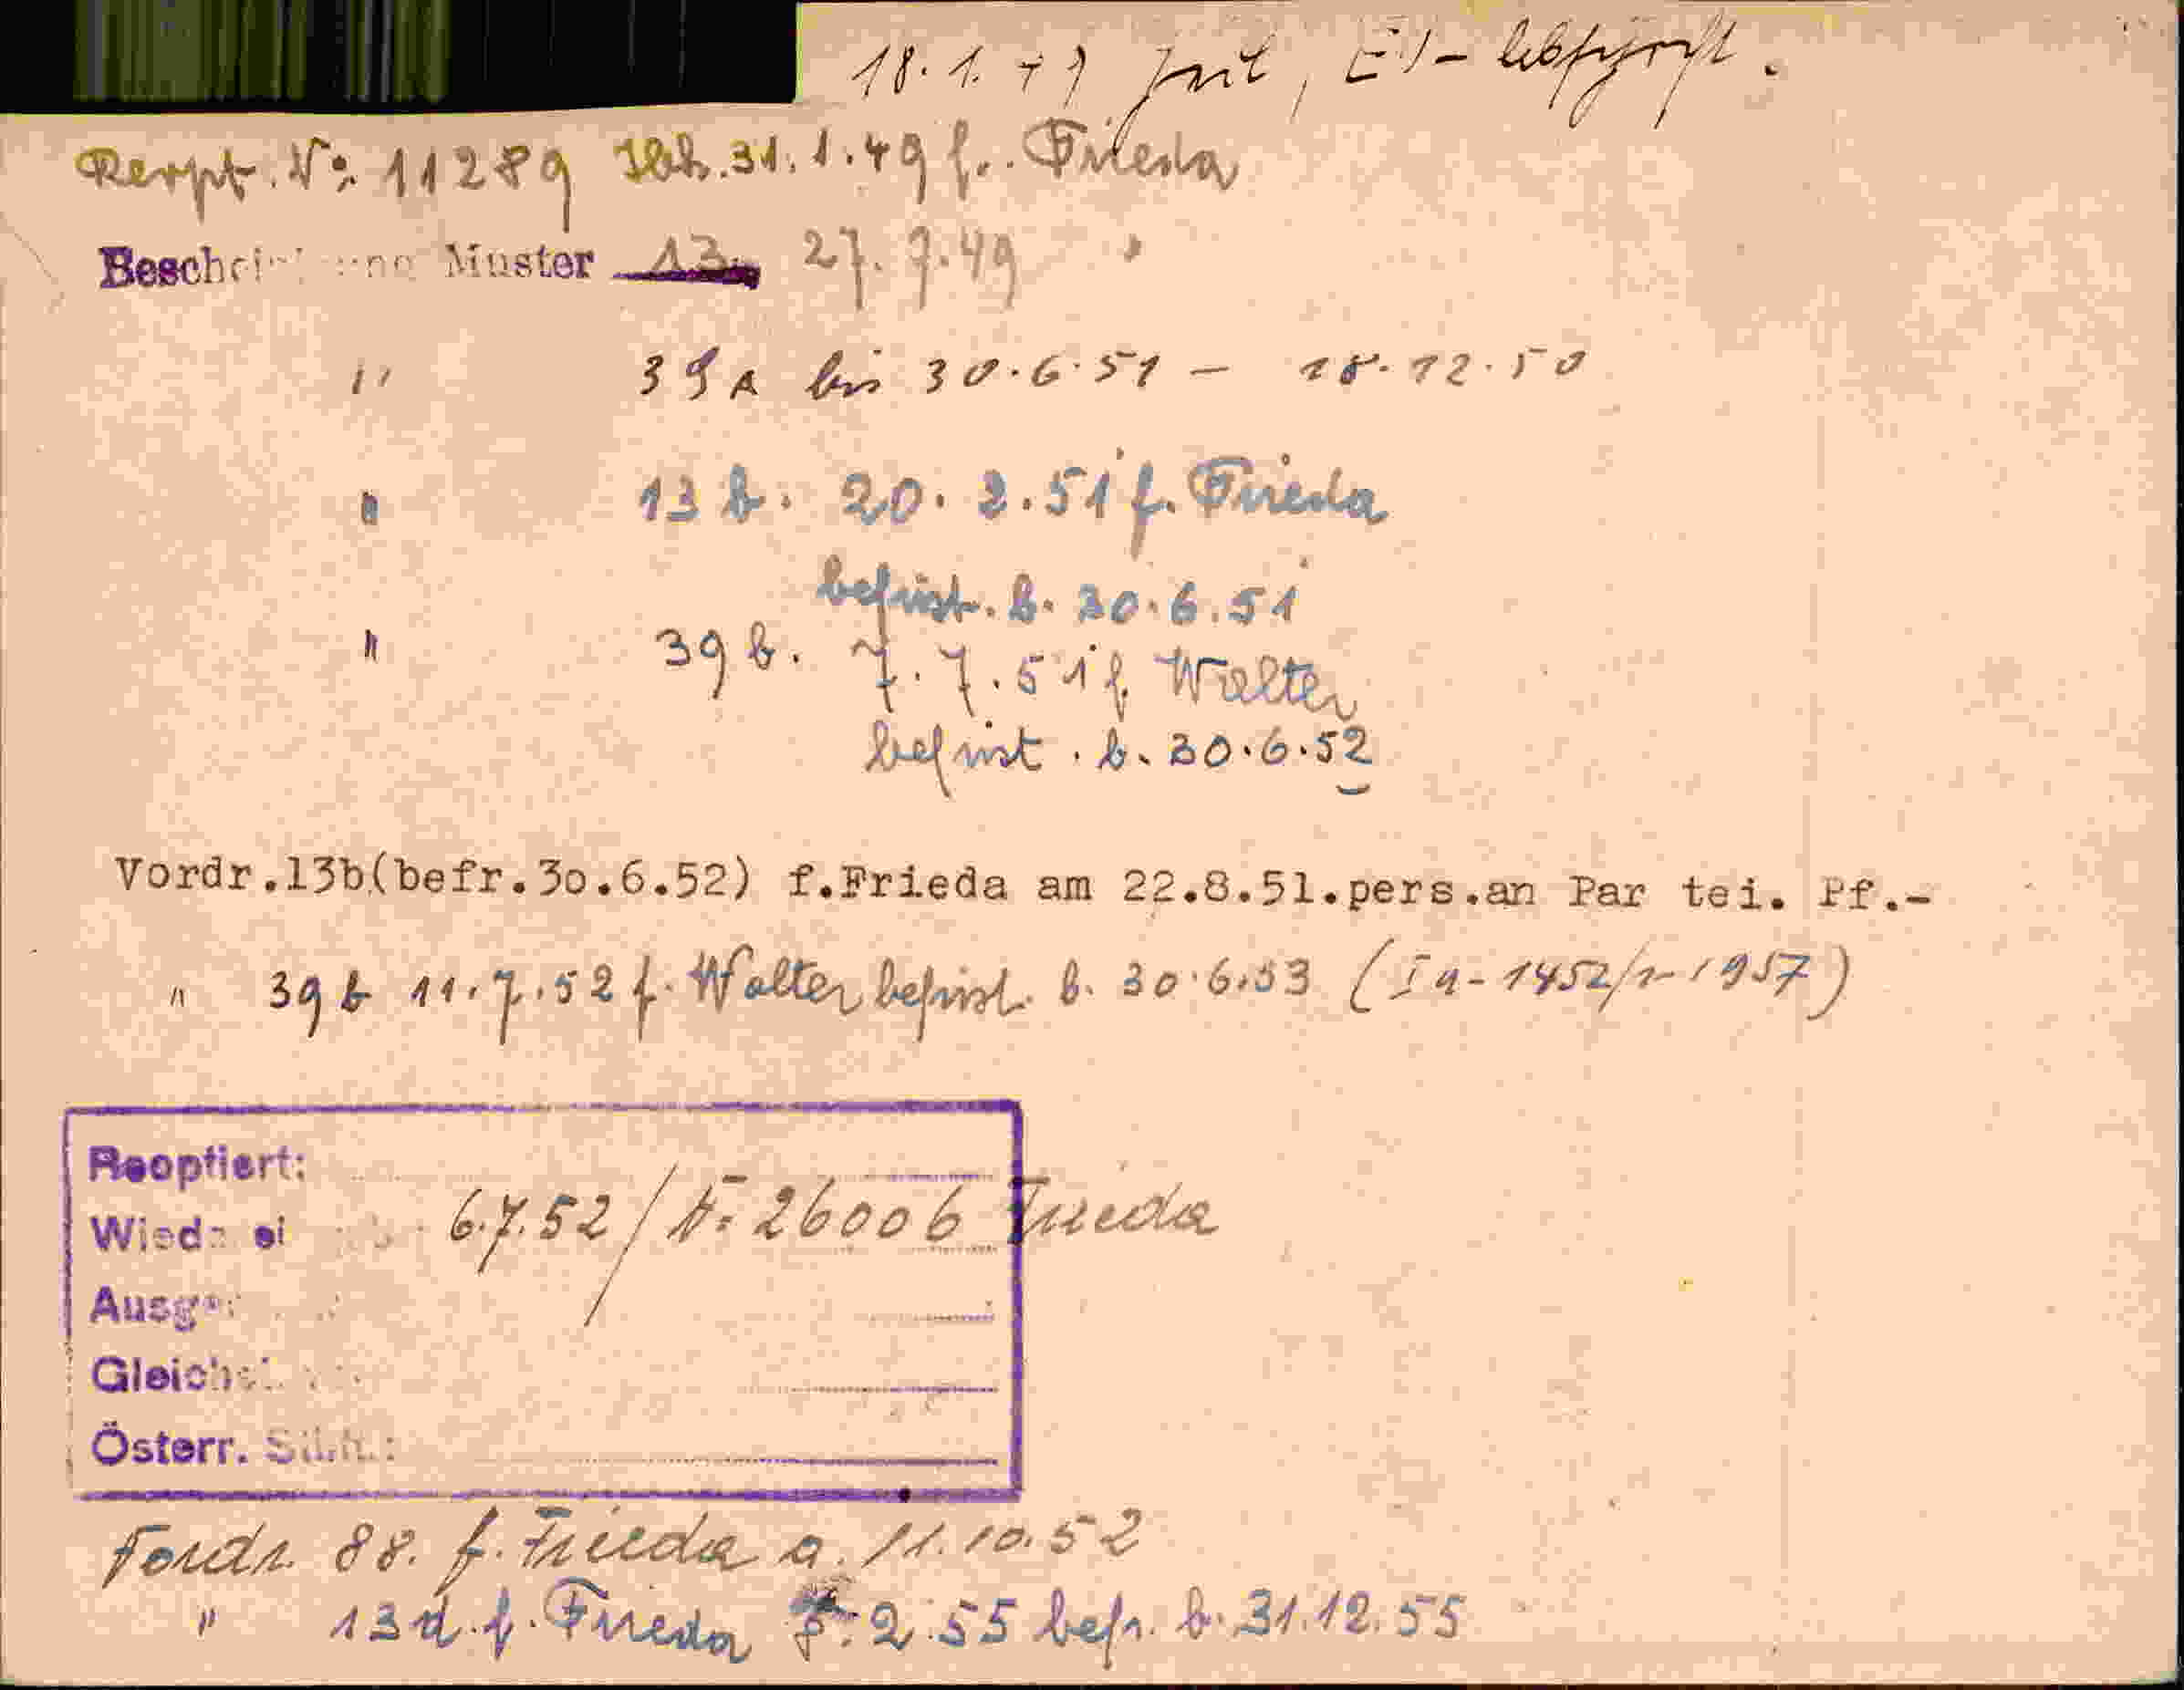 18.1.49
Rerpt. No. 11289 31.1.49 f. Frieda
Bescheinigung Muster 13 27.7.49 "
" 39A bis 30.6.51 – 18.12.50
" 13 b. 20.2.51 f. Frieda
befrist. b. 30.6.51
" 39 b. 7.7.51 f. Walter
befrist. b. 30.6.52
Vordr.13b(befr.3o.6.52) f.Frieda am 22.8.51.pers.an Par tei. Pf.-
" 39 b 11.7.52 f. Walter befrist. b. 30.6.53 (Ia-1452/1-1957)
Reoptiert:
6.7.52/N. 26006 Frieda
Österr. Stbh.:
Vordr. 88. f. Frieda a. 11.10.52
" 13d. f. Frieda 5.2.55 befr. b. 31.12.55